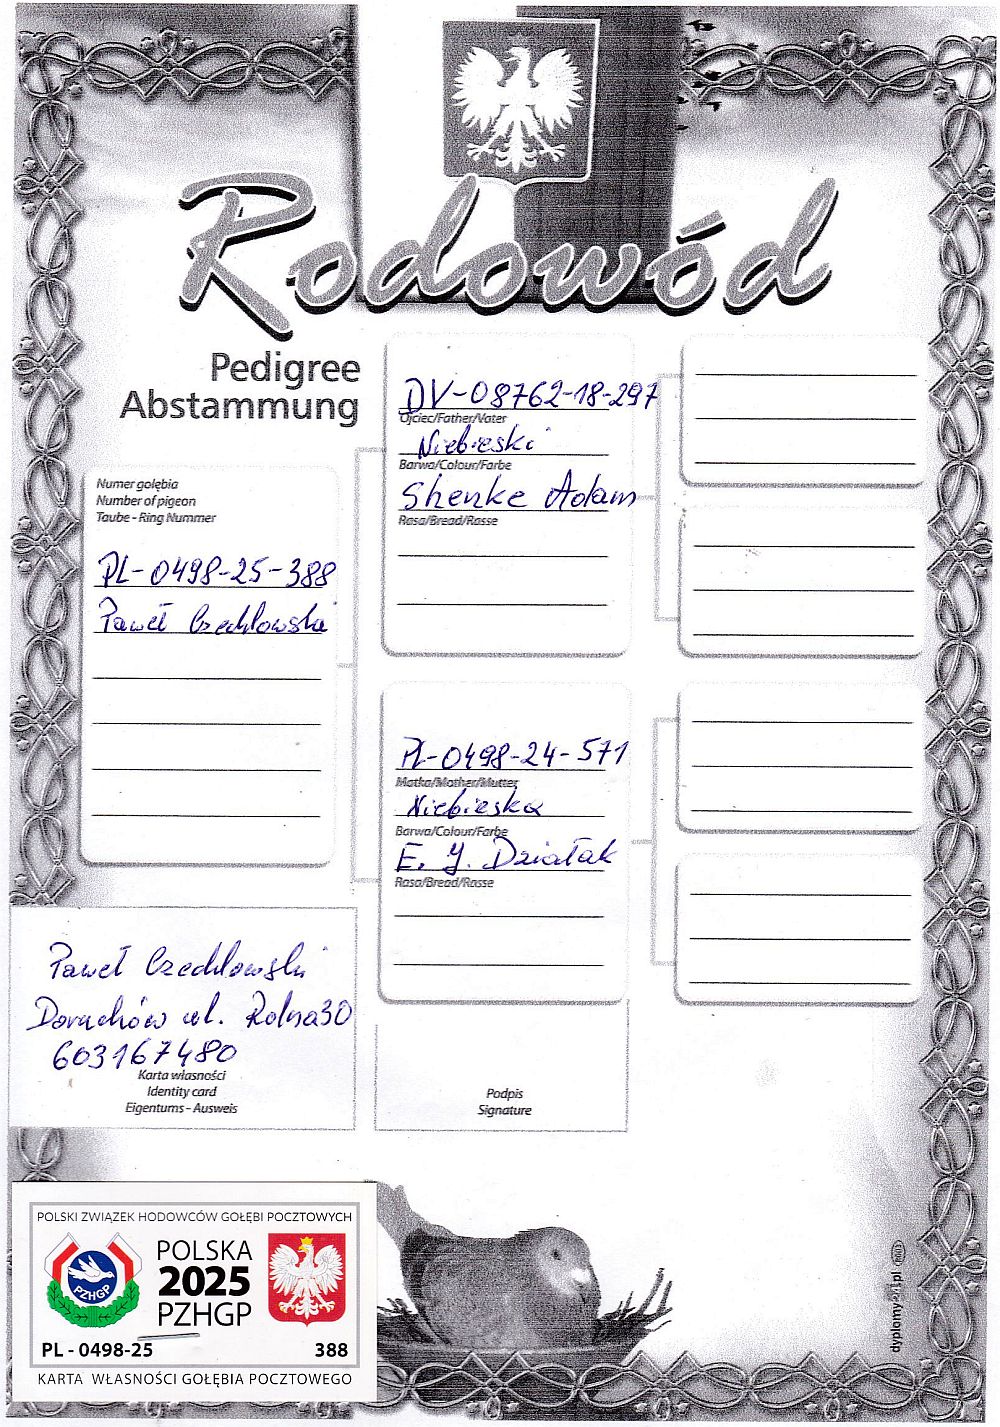 Rodowód
Pedigree
Abstammung
Numer gołębia
Number of pigeon
Taube - Ring Nummer
PL-0498-25-388
Paweł Czechlowski
DV-08762-18-297
Ojciec/Father/Vater
Niebieski
Barwa/Colour/Farbe
Shenke Adam
Rasa/Bread/Rasse
PL-0498-24-571
Matka/Mother/Mutter
Niebieska
Barwa/Colour/Farbe
E. J. Działak
Rasa/Bread/Rasse
Paweł Czechlowski
Doruchów ul. Rolna 30
603167480
Karta własności
Identity card
Eigentums - Ausweis
Podpis
Signature
POLSKI ZWIĄZEK HODOWCÓW GOŁĘBI POCZTOWYCH
PZHGP
POLSKA
2025
PZHGP
PL - 0498-25 388
KARTA WŁASNOŚCI GOŁĘBIA POCZTOWEGO
dyplomy24.pl